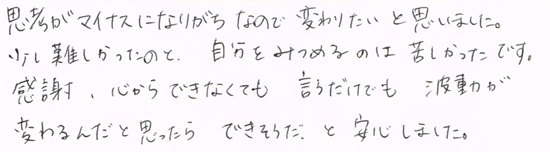 思考がマイナスになりがちなので変わりたいと思いました。
少し難しかったのと、自分をみつめるのは苦しかったです。
感謝、心からできなくても言うだけでも波動が
変わるんだと思ったらできそうだ、と安心しました。